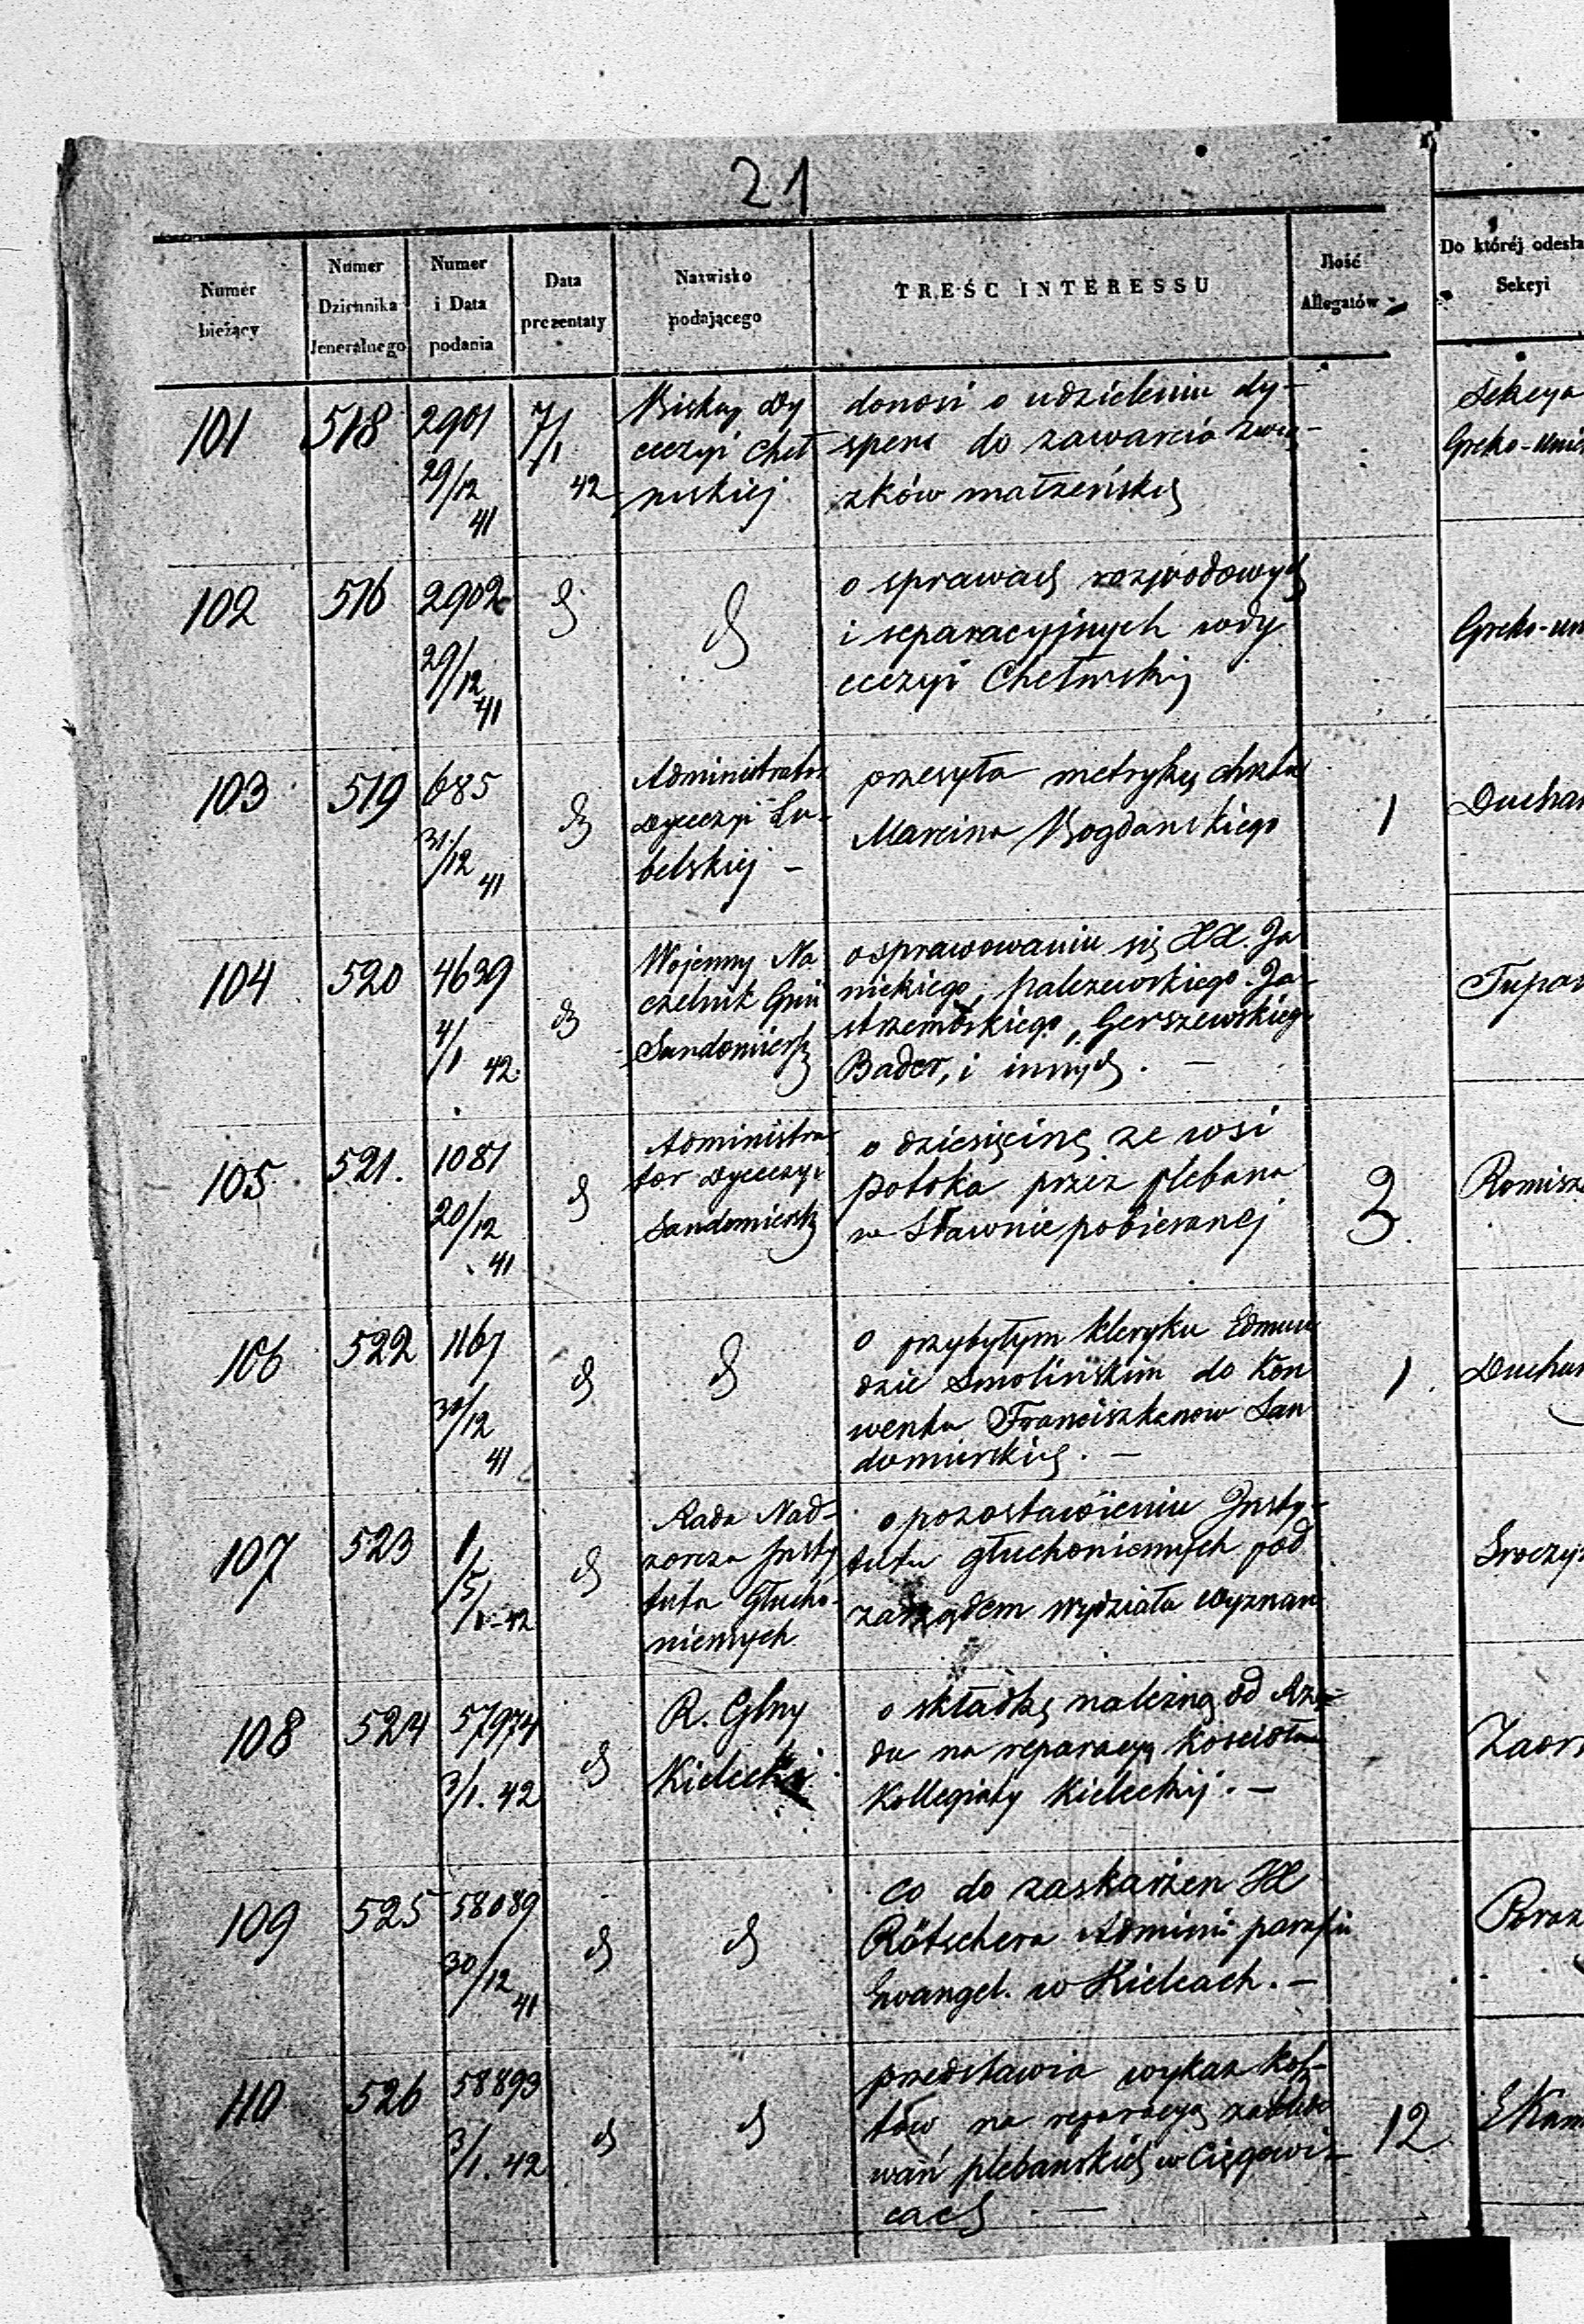 21
Numer bieżący
Numer Dziennika Jeneralnego
Numer i Data podania
Data prezentaty
Nazwisko podającego
TREŚC INTERESSU
Ilość Allegatów
Do któréj odesła
Sekcyi
101 518 2901 29/12 41 7/1 42
Biskup Dy
ecezyi Cheł
mskiej
donosi o udzieleniu dy-
spens do zawarcia zwią-
zków małżeńskich
Sekcya
Greko-Unic
102 516 2902 29/12 41 d
d
o sprawach rozwodowych
i separacyjnych w dy
ecezyi Chełmskiej
Greko-un
103 519 685 31/12 41 d
Administrator
Dyecezyi Lu-
belskiej –
przesyła metrykę chrztu
Marcina Bogdanskiego
1
Duchan
104 520 4639 4/1 42 d
Wojenny Na
czelnik Gnii
Sandomiersk
o sprawowaniu się XX. Ja
nickiego, Palczewskiego. Ja-
strzembskiego, Gerszewskiego
Bader, i innych. –
Tupa
105 521. 1081 20/12 41 d
Administra
tor Dyecezyi
Sandomiersk
o dziesięcinę ze wsi
Potoka przez plebana
w Sławnie pobieranej
3.
Romisz
106 522 1167 30/12 41 d
d
o przybyłym kleryku Edmun
dzie Smolińskim do Kon
wentu Franciszkanow San
domierskich. –
1.
Duchan
107 523 1/5/1-42 d
Rada Nad-
zorcza Insty
tutu Głucho-
niemych
o pozostawieniu Insty-
tutu głuchoniemych pod
zarządem Wydziału Wyznan
108 524 57974 3/1. 42 d
R. Glny
Kielecki
o składkę należną od Rzą-
du na reparacyą Kościoła
Kollegiaty Kieleckiej. –
Zaor
109 525 58089 30/12 41 d
d
co do zaskarżen XX
Rötschera Admini parafii
Ewangel. w Kielcach. –
110 526 58893 3/1. 42 d
d
przedstawia wykaz kosz-
tów na reparacyą zabudo
wań plebanskich w Cięgowi-
cach –
12